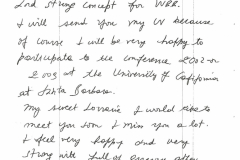 2nd string concept for WRR.
I will send you my CV because
of course I will be very happy to
participate to the conference 2002 or
2003 at the University of California
at Santa Barbara.
My sweet Lorraine I would like to
meet you soon I miss you a lot.
I feel very happy and very
strong with full of